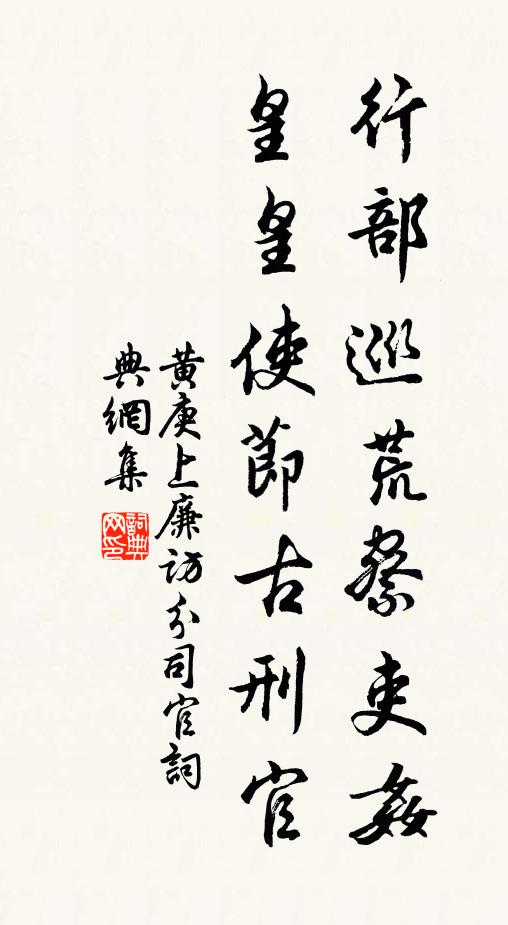 行部巡荒察吏姦
皇皇使節古刑官
黄庚上廉訪分司官詞
典網集
詞典
网印